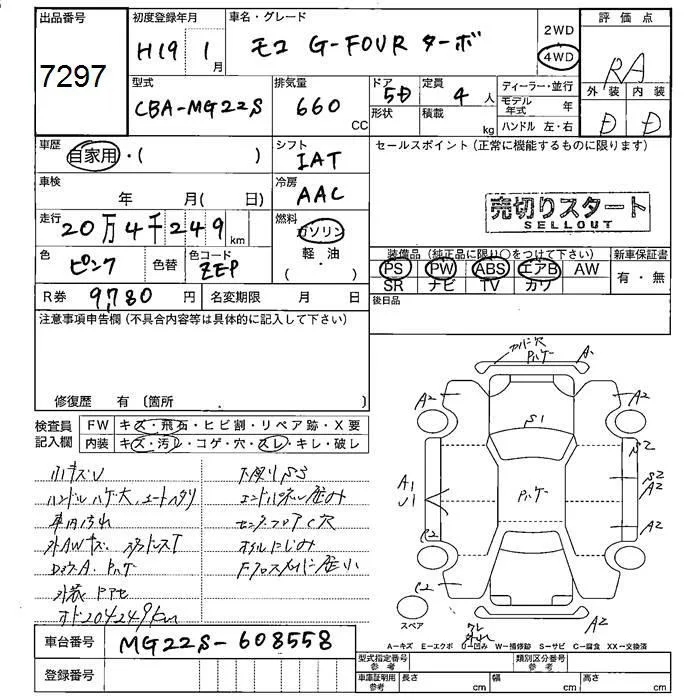 出品番号
7297
初度登録年月
H19 1月
車名・グレード
モコ G-FOUR ターボ
2WD
4WD
評価点
RA
外装 内装
D D
型式
CBA-MG22S
排気量
660 CC
ドア
5D
形状
定員
4人
積載
kg
ディーラー・並行
モデル年式 年
ハンドル 左・右
車歴
自家用・( )
シフト
IAT
セールスポイント(正常に機能するものに限ります)
売切りスタート
SELLOUT
車検
年 月( 日)
冷房
AAC
走行
20万4千249km
燃料
ガソリン
軽・油
( )
色
ピンク
色替
色コード
ZEP
装備品(純正品に限り○をつけて下さい)
PS PW ABS エアB AW
SR ナビ TV カワ
新車保証書
有・無
R券 9,780円
名変期限 月 日
後日品
注意事項申告欄(不具合内容等は具体的に記入して下さい)
修復歴 有〔箇所 〕
検査員記入欄
FW キズ・飛石・ヒビ割・リペア跡・X要
内装 キズ・汚レ・コゲ・穴・スレ・キレ・破レ
小キズU
ハンドルハゲ大
車内汚れ
外AWキズ
オド204249km
下廻りS3
エンドパネル歪み
センターフロアC穴
オイルにじみ
カバー穴
ハゲ
A
A2
A2
S1
S2
A1
U1
S2
A2
ハゲ
A2
A2
スペア
A-キズ E-エクボ U-凹み W-補修跡 S-サビ C-腐食 XX-交換済
車台番号 MG22S-608558
登録番号
型式指定番号 参考
類別区分番号 参考
車庫証明用 参考
長さ cm
幅 cm
高さ cm